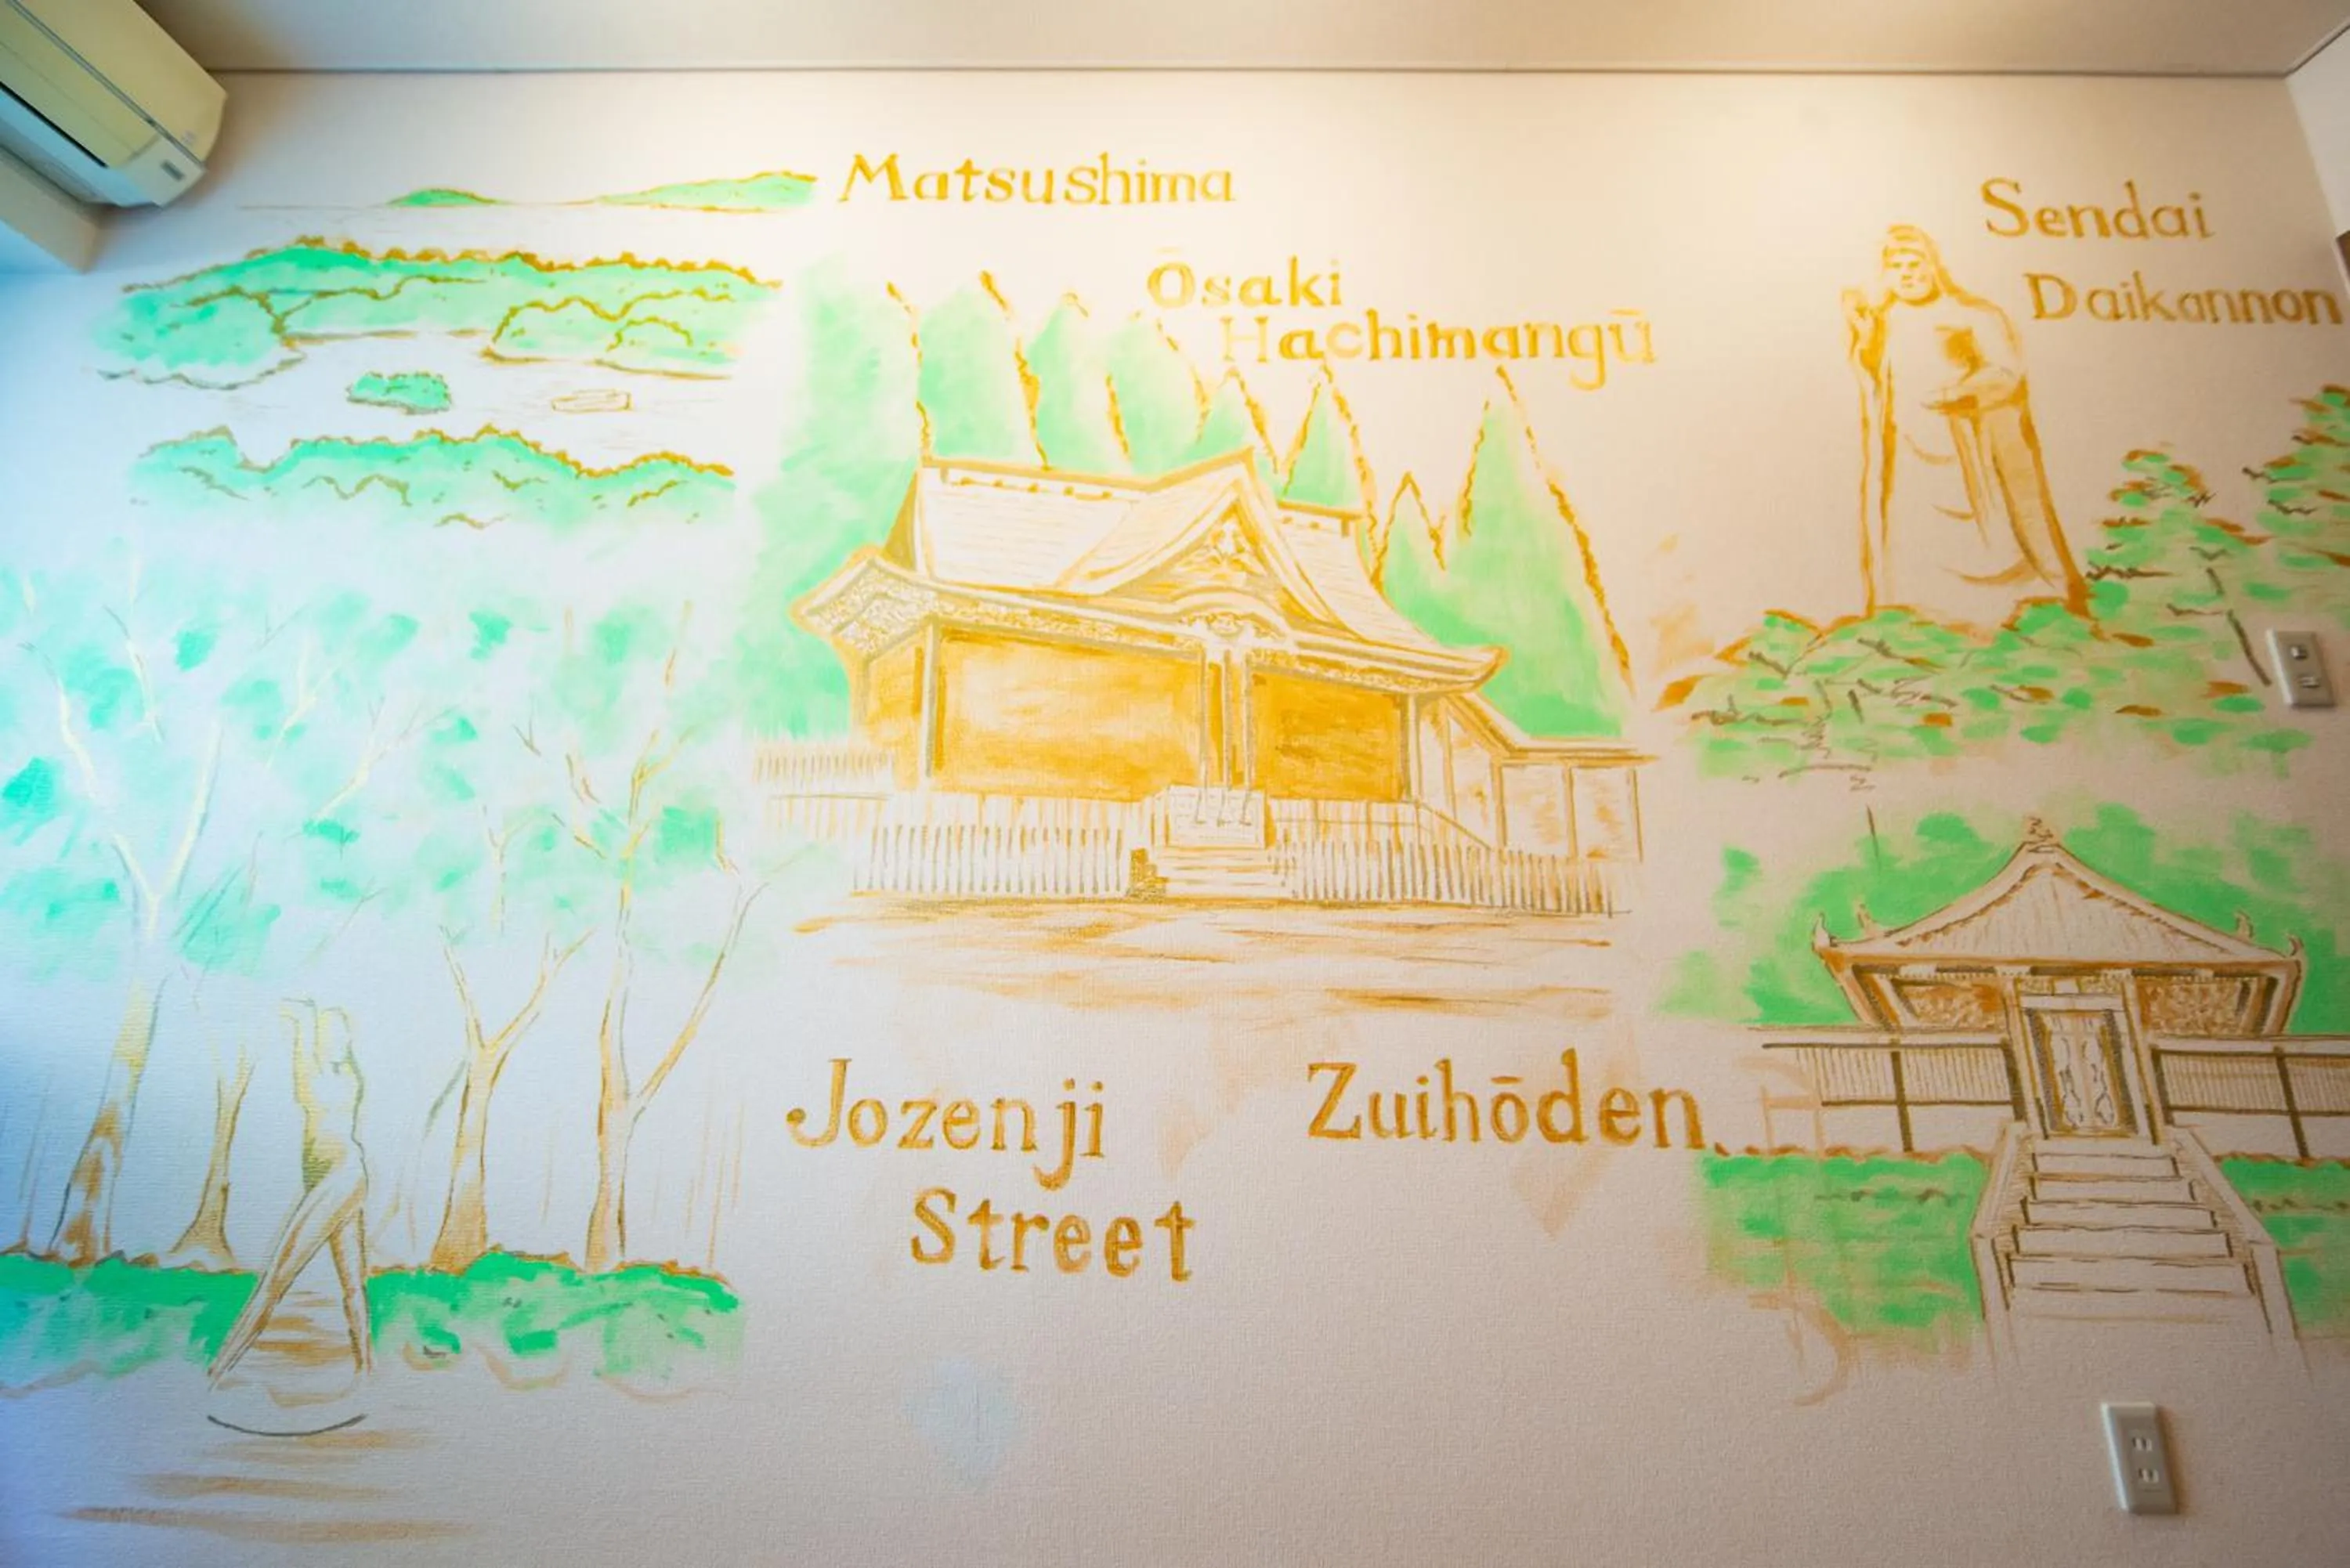 Matsushima
Ōsaki
Hachimangū
Sendai
Daikannon
Jozenji
Street
Zuihōden